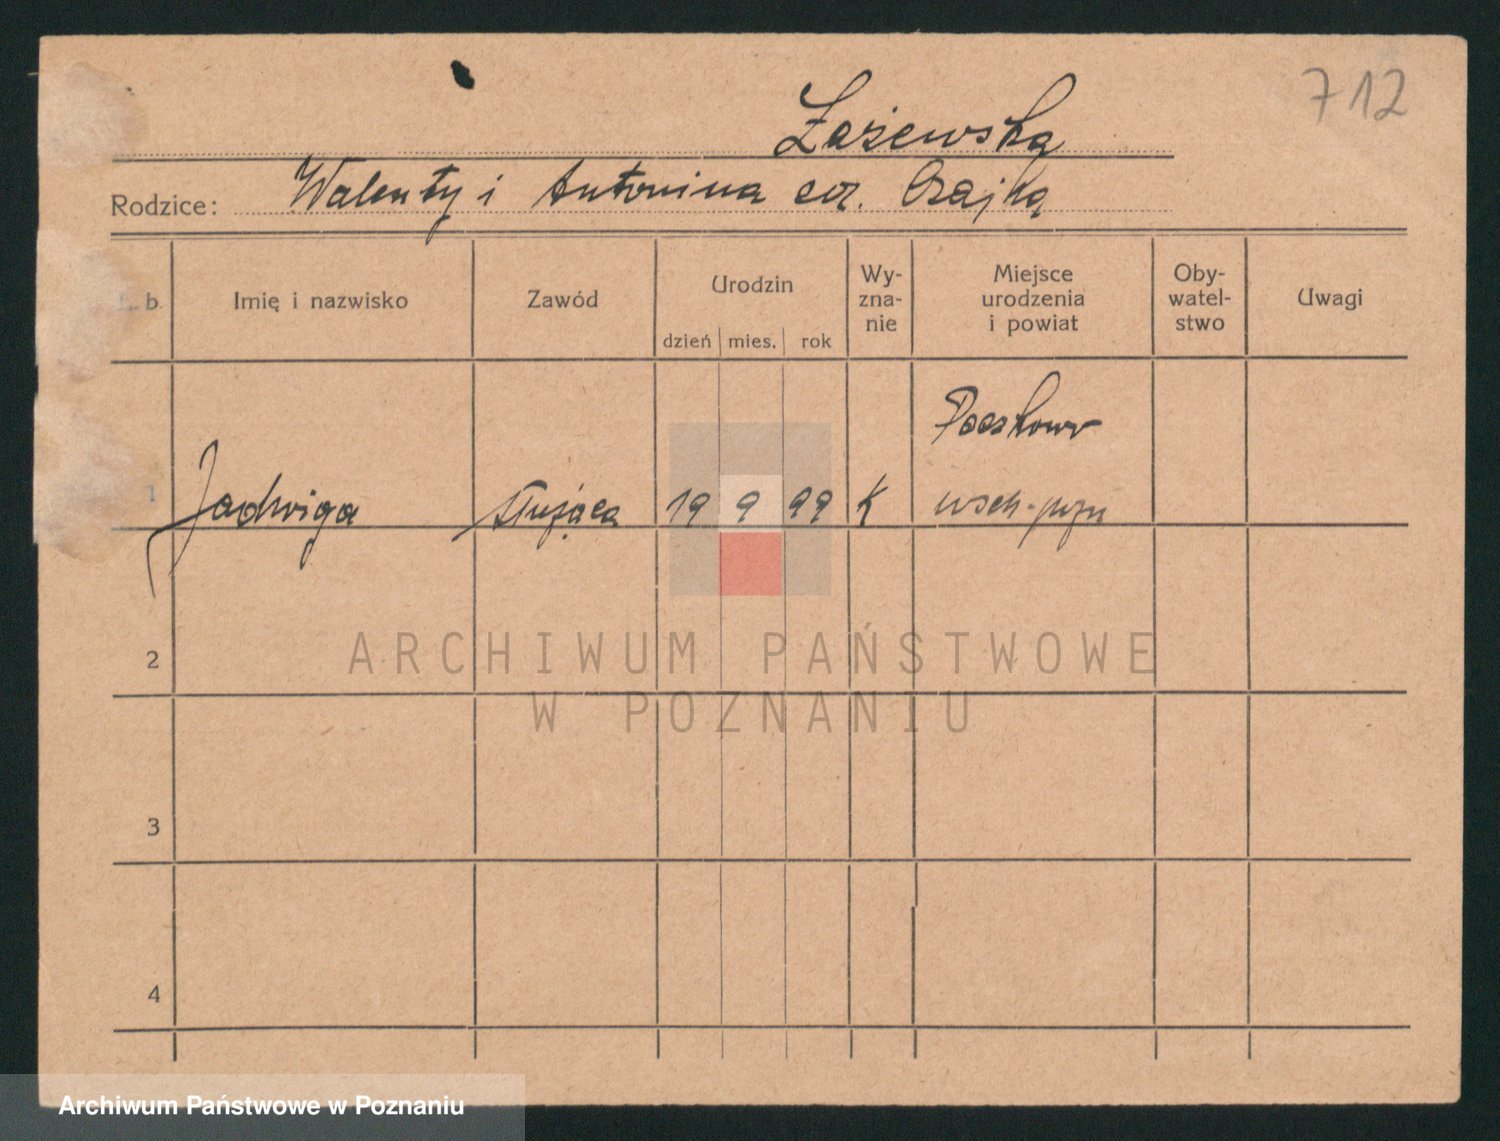 712
Zażewska
Rodzice: Walenty i Antonina cór. Czajka
L. b. Imię i nazwisko Zawód Urodzin dzień mies. rok Wy-zna-nie Miejsce urodzenia i powiat Oby-watel-stwo Uwagi
1 Jadwiga służąca 19 9 99 K
2
3
4
ARCHIWUM PAŃSTWOWE
W POZNANIU
Archiwum Państwowe w Poznaniu